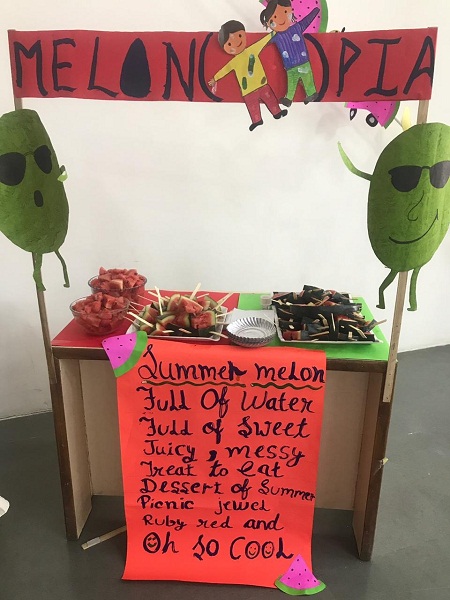 MELONOPIA
Summer melon
Full Of Water
Full of Sweet
Juicy, messy
Treat to Eat
Dessert of Summer
Picnic jewel
Ruby red and
Oh So COOL